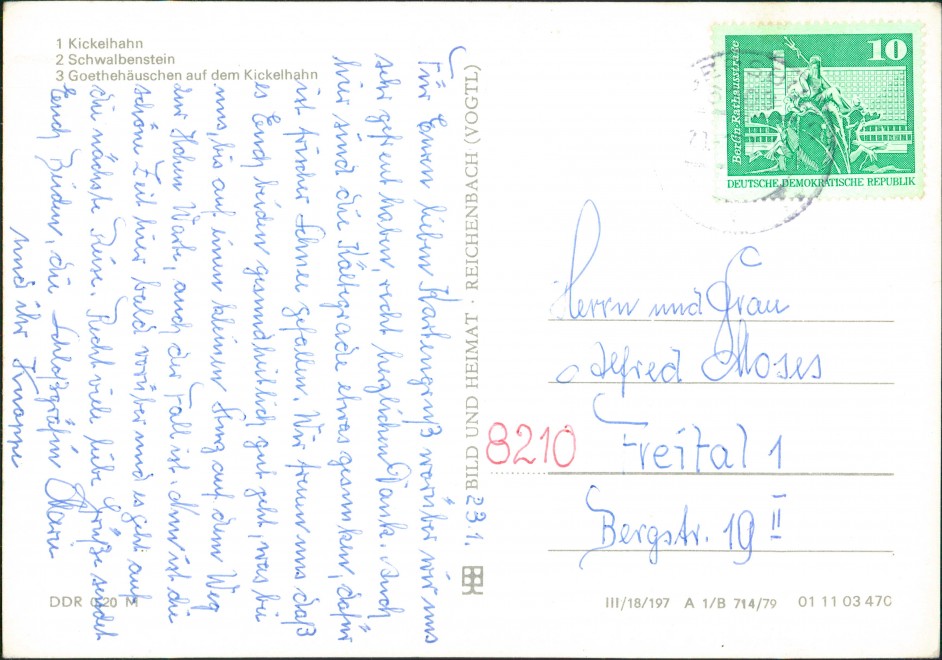 1 Kickelhahn
2 Schwalbenstein
3 Goethehäuschen auf dem Kickelhahn
23.1.
Für Euren lieben Kartengruß worüber wir uns
sehr gefreut haben, recht herzlichen Dank. Auch
hier sind die Kältegrade etwas gesunken, dafür
ist frischer Schnee gefallen. Wir freuen uns daß
es Euch beiden gesundheitlich gut geht, was bei
uns, bis auf einen kleinen Sturz auf dem Weg
zur Hohen Warte, auch der Fall ist. Nun ist die
schöne Zeit hier bald vorüber und es geht auf
die nächste Reise. Recht viele liebe Grüße sendet
Euch Beiden, die Schloßgräfin Marie
und ihr Knappe
BILD UND HEIMAT · REICHENBACH (VOGTL)
10
Berlin-Rathausstraße
DEUTSCHE DEMOKRATISCHE REPUBLIK
Herrn und Frau
Alfred Moses
8210
Freital 1
Bergstr. 19 II
DDR 0,20 M
III/18/197 A 1/B 714/79 01 11 03 470